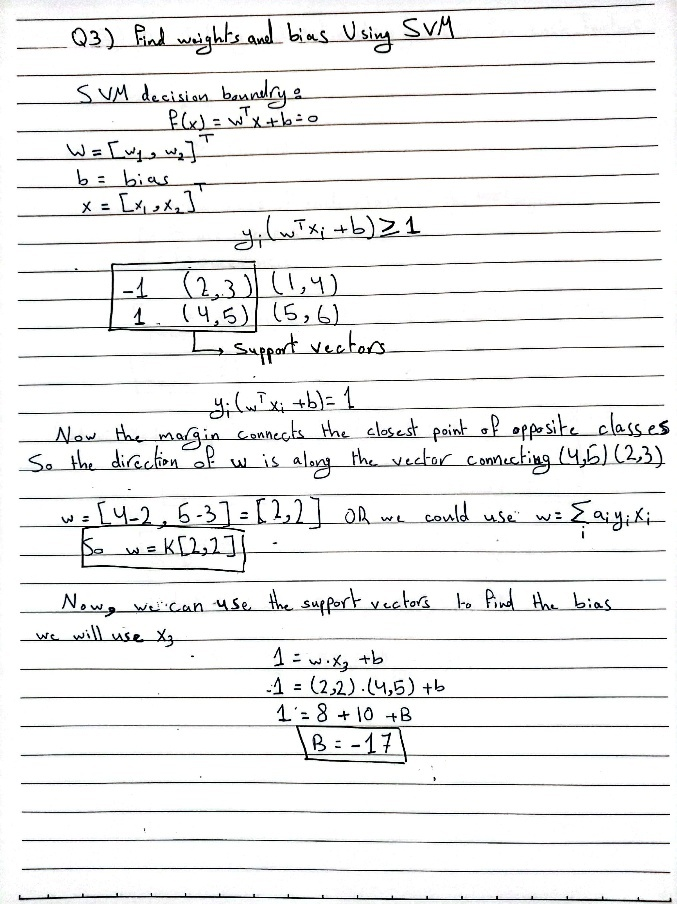 Q3) Find weights and bias Using SVM
SVM decision boundry:
f(x) = wᵀx+b=0
W = [w₁, w₂]ᵀ
b = bias
x = [x₁, x₂]ᵀ
yᵢ(wᵀxᵢ +b) ≥ 1
-1 (2,3) (1,4)
1. (4,5) (5,6)
↳ Support vectors
yᵢ(wᵀxᵢ +b)= 1
Now the margin connects the closest point of opposite classes
So the direction of w is along the vector connecting (4,5) (2,3)
w = [4-2, 5-3] = [2,2] OR we could use w= Σᵢ aᵢyᵢxᵢ
So w = K[2,2]
Now, we can use the support vectors to find the bias
we will use x₃
1 = w.x₃ +b
-1 = (2,2).(4,5) +b
1 = 8 + 10 +B
B = -17